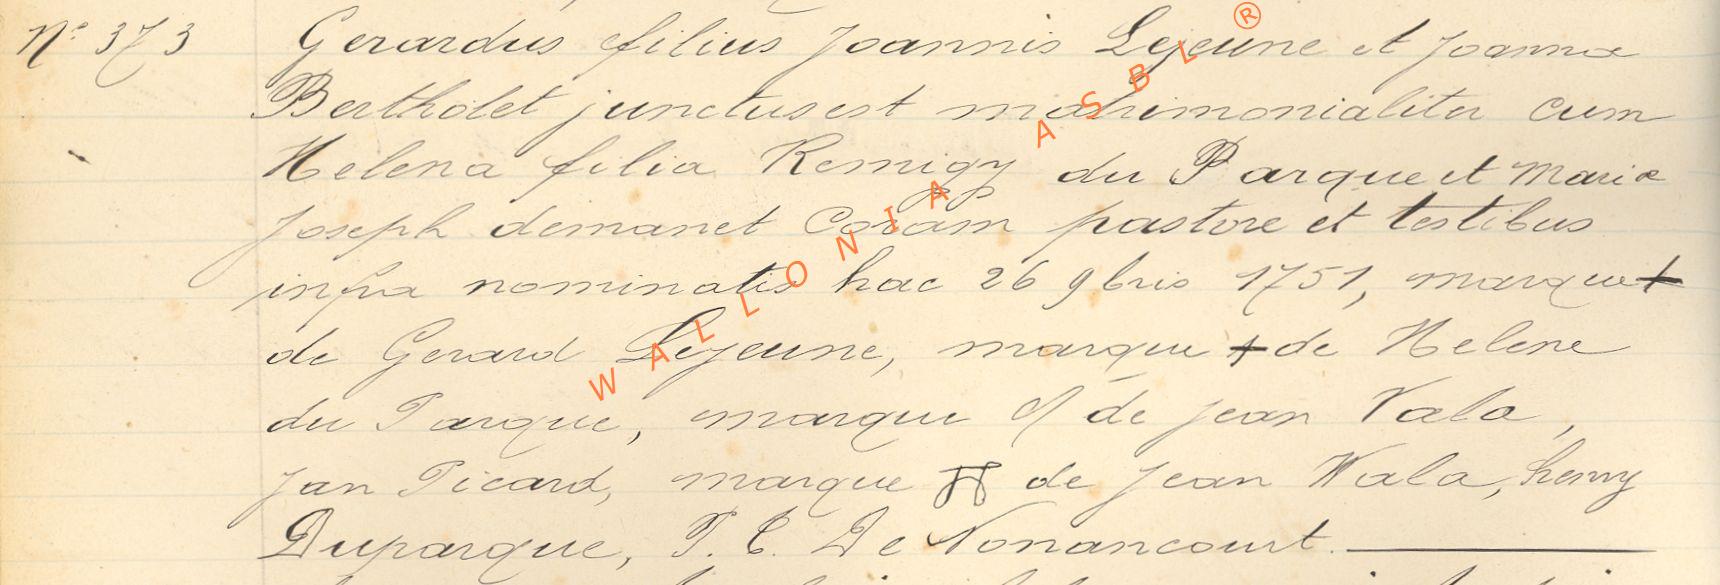 N° 373 Gerardus filius Joannis Lejeune et Joannæ
Bertholet junctus est matrimonialiter cum
Helena filia Remigy du Parque et Mariæ
Joseph demanet Coram pastore et testibus
infra nominatis hac 26 9bris 1751, marque +
de Gerard Lejeune, marque + de Helene
du Parque, marque de Jean Vala,
Jan Picard, marque de Jean Wala, henry
Duparque, P. C. De Nonancourt.
WALLONIA ASBL ®